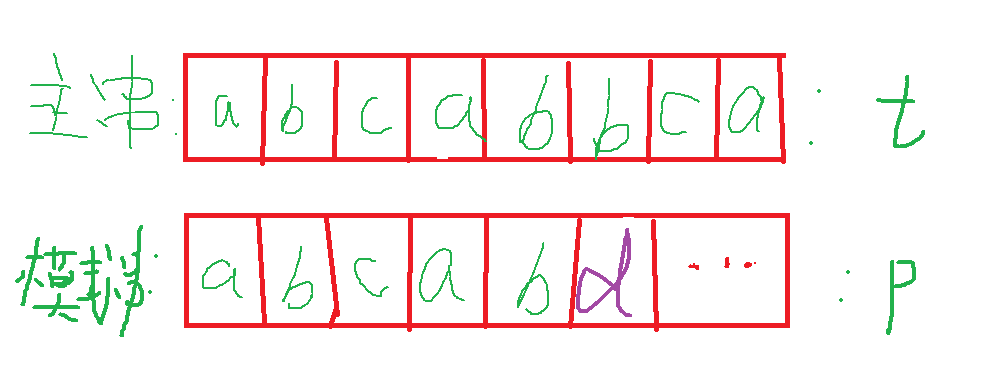 主串: a b c a b b c a : t
模拟: a b c a b d ... : p